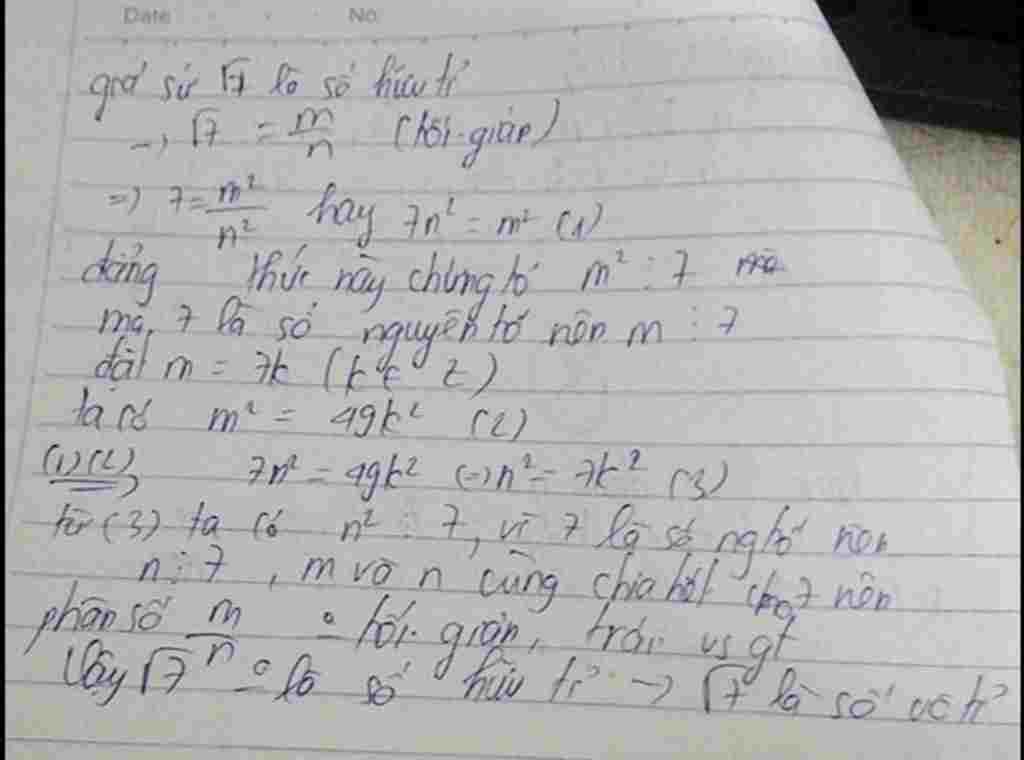 Date No
giả sử √7 là số hữu tỉ
→ √7 = m/n (tối giản)
=> 7 = m²/n² hay 7n² = m² (1)
đẳng thức này chứng tỏ m² ⋮ 7
mà 7 là số nguyên tố nên m ⋮ 7
đặt m = 7k (k ∈ Z)
ta có m² = 49k² (2)
(1)(2) 7n² = 49k² (=) n² = 7k² (3)
từ (3) ta có n² ⋮ 7, vì 7 là số ngtố nên
n ⋮ 7, m và n cùng chia hết cho 7 nên
phân số m/n o tối giản, trái vs gt
Vậy √7 o là số hữu tỉ → √7 là số vô tỉ